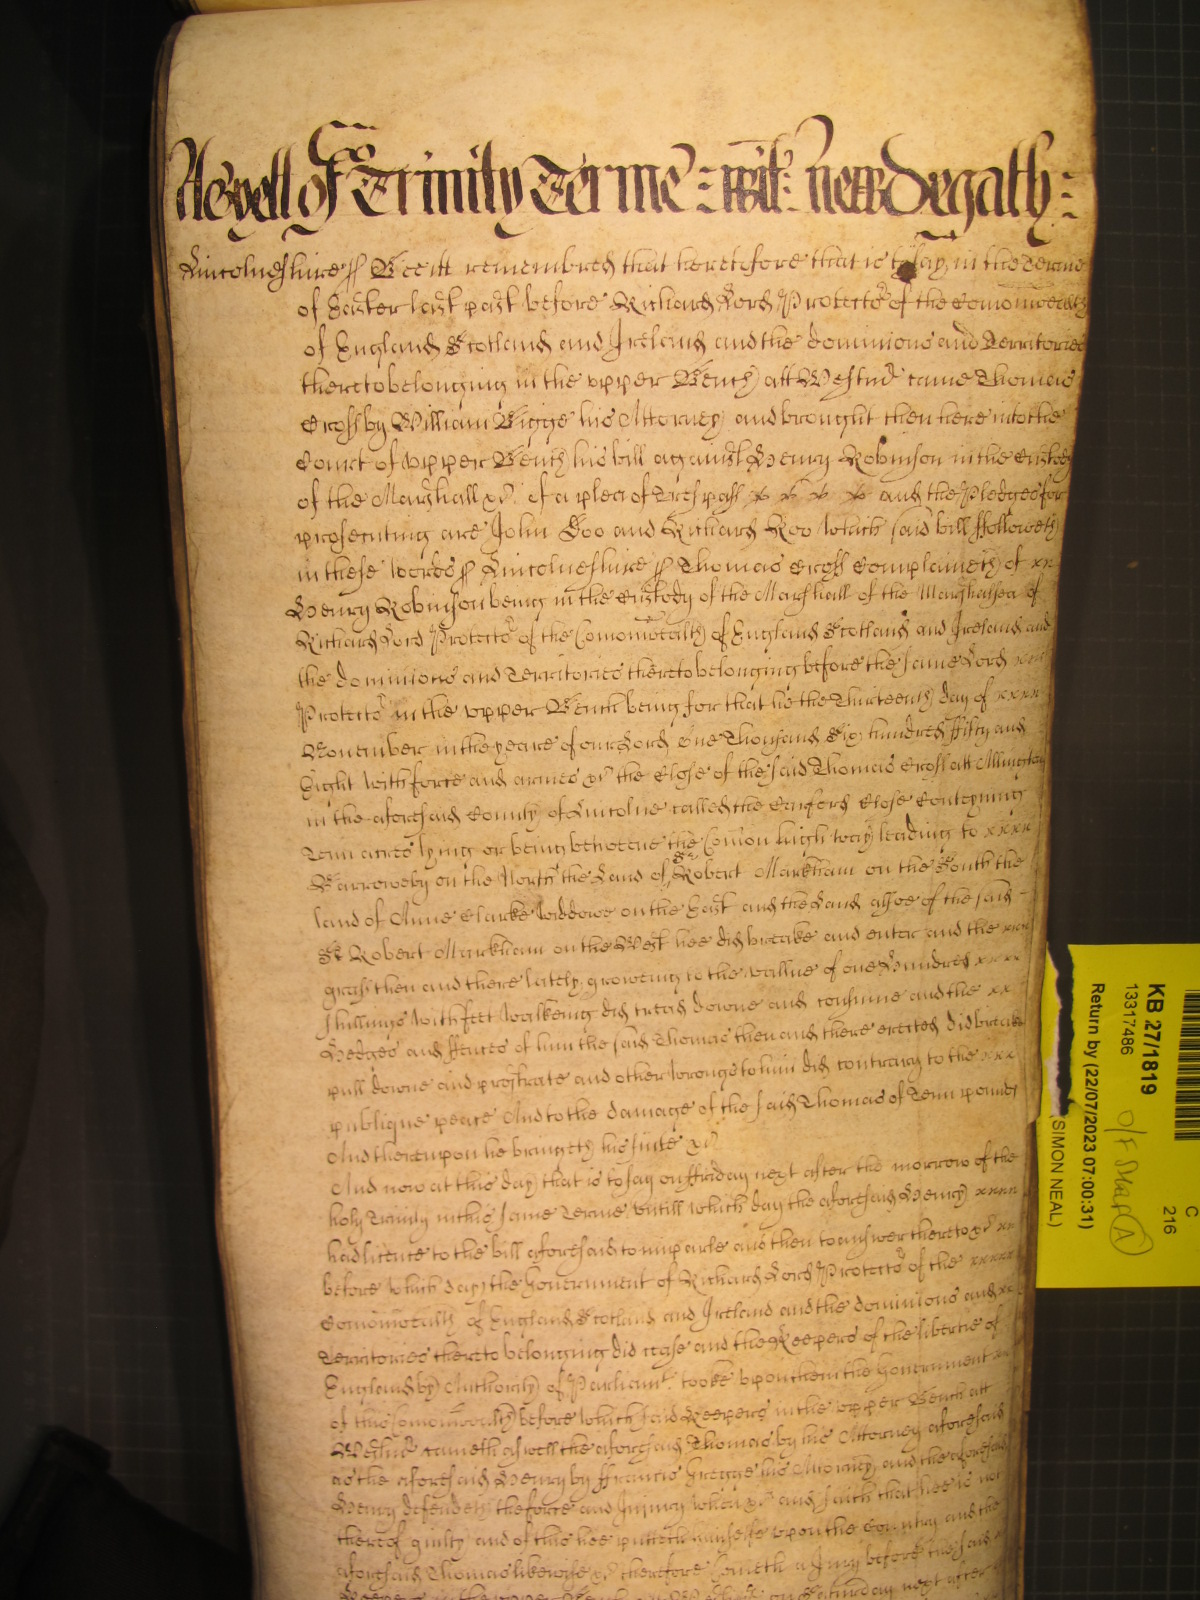 As yett of Trinity Terme : wit: newdegath :
Lincolneshire ss Bee itt remembred that heretofore that is to say in the Terme
of Easter last past before Richard Lord Protector of the Comonwealth
of England Scotland and Ireland and the dominions and Territories
thereto belonging in the upper Bench att Westmr came Thomas
Cross by William Bigge his Attorney and brought then here into the
Court of upper Bench his bill against Henry Robinson in the Custody
of the Marshall xc. of a plea of Trespass x x x x and the Pledges for
prosecuting are John Doo and Richard Roo which said bill ffolloweth
in these words ss Lincolneshire ss Thomas Cross Complaineth of xx
Henry Robinson being in the Custody of the Marshall of the Marshalsea of
Richard Lord Protector of the Comonwealth of England Scotland and Ireland and
the dominions and Territories thereto belonging before the same Lord xxx
Protector in the upper Bench being for that he the Thirteenth day of xxxx
November in the yeare of our Lord One Thousand Six hundred ffifty and
Eight with force and armes xc the Close of the said Thomas Cross att Allington
in the aforesaid County of Lincolne called the Close Conteyning
Tenn acres lying or being betweene the Comon high way leading to xxxx
Barroweby on the North the Land of Sr Robert Markham on the South the
land of Anne Clarke widdowe on the East and the Land alsoe of the said
Sr Robert Markham on the West hee did breake and enter and the xxx
grass then and there lately groweing to the vallue of one Hundred xxxx
shillings with feet walkeing did tread downe and consume and the xx
Hedges and ffences of him the said Thomas then and there erected did breake
pull downe and prostrate and other wrongs to him did contrary to the xxx
publique peace And to the damage of the said Thomas of Tenn pounds
And thereupon he bringeth his suite xc
And now at this day that is to say on ffriday next after the morrow of the
holy Trinity in this same Terme untill which day the aforesaid Henry xxxx
had licence to the bill aforesaid to imparle and then to answer thereto xc xx
before which day the Government of Richard Lord Protector of the xxxxx
Comonwealth of England Scotland and Ireland and the dominions and xx
Territories thereto belonging did cease and the Keepers of the libertie of
England by Authority of Parliamt. tooke upon them the Government xx
of this Comonwealth before which said Keepers in the upper Bench att
Westmr cometh aswell the aforesaid Thomas by his Attorney aforesaid
as the aforesaid Henry by ffrancis Gregge his Attorney and the aforesaid
Henry defendeth the force and Injury when xc and saith that hee is not
thereof guilty and of this hee putteth himselfe upon the Country and the
aforesaid Thomas likewise xc therefore cometh a Jury before the said
Keepers in the upper Bench att on Saturday next after
C
216
KB 27/1819
13317486
Return by (22/07/2023 07:00:31)
(SIMON NEAL)
O/F Map A